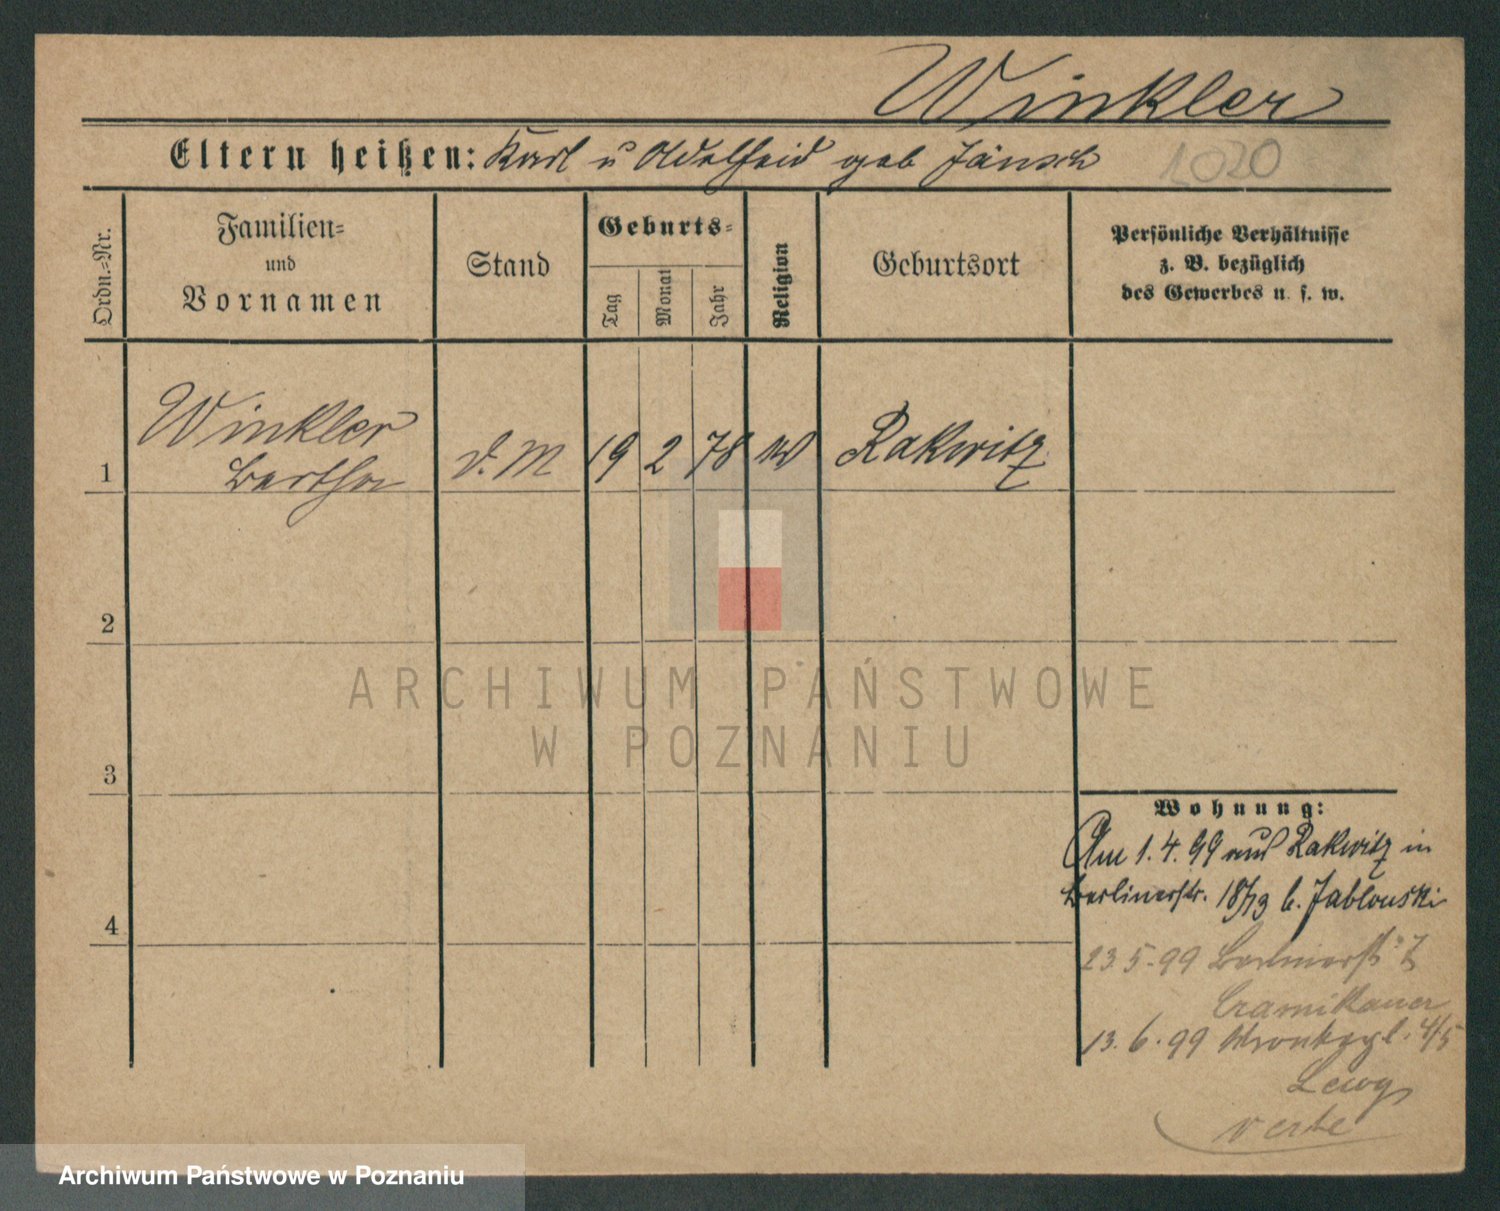 Winkler
Eltern heißen: Karl u Adelheid geb Jänsch
1020
Ordn.-Nr.
Familien-
und
Vornamen
Stand
Geburts-
Tag
Monat
Jahr
Religion
Geburtsort
Persönliche Verhältnisse
z. B. bezüglich
des Gewerbes u. s. w.
Winkler
1 Bertha d. M 19 2 78 Rakwitz
2
ARCHIWUM PAŃSTWOWE
W POZNANIU
3
Wohnung:
Am 1.4.99 aus Rakwitz in
Berlinerstr. 18/19 b. Jablonski
4
23.5.99 Berlinerstr 7
13.6.99 4/5
Archiwum Państwowe w Poznaniu